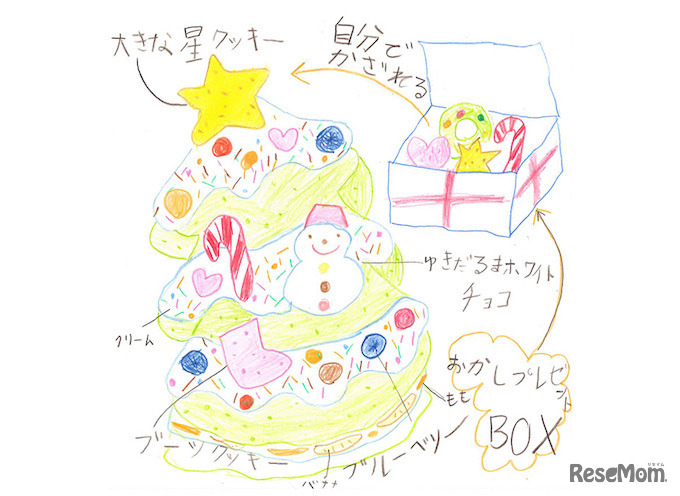 大きな星クッキー
自分で
かざれる
ゆきだるまホワイト
チョコ
クリーム
おかしプレゼント
BOX
もも
ブーツクッキー
ブルーベリー
バナナ
リセマム
ReseMom.